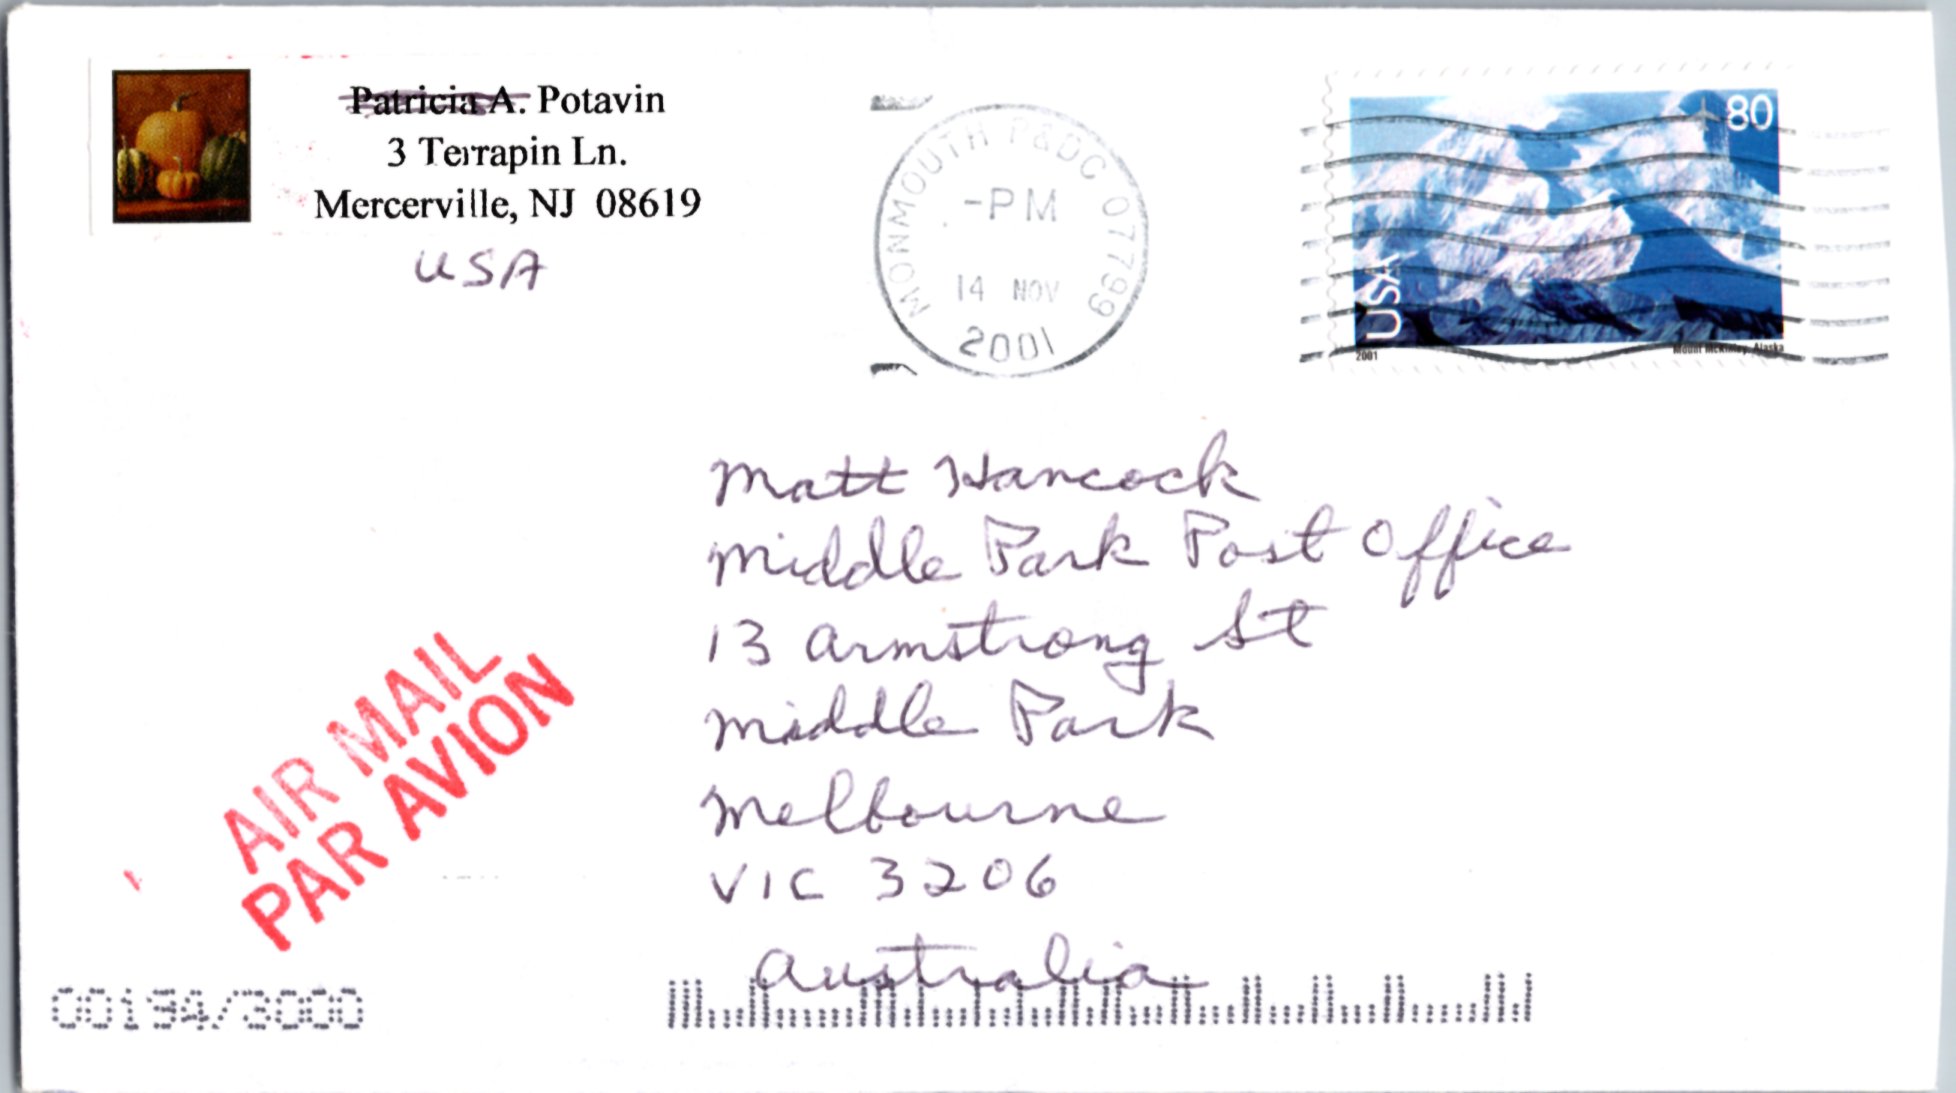 Patricia A. Potavin
3 Terrapin Ln.
Mercerville, NJ 08619
USA
MONMOUTH P&DC 07799
-PM
14 NOV
2001
80
USA
2001
Mount McKinley, Alaska
Matt Hancock
Middle Park Post Office
13 Armstrong St
Middle Park
Melbourne
VIC 3206
Australia
AIR MAIL
PAR AVION